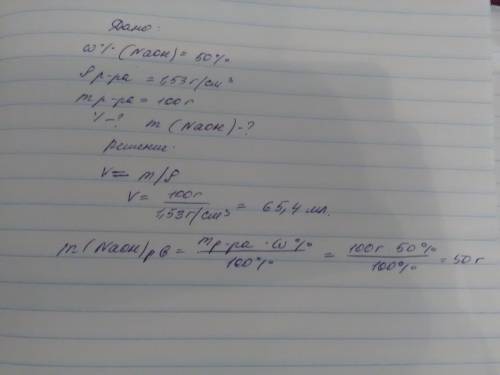 Дано:
ω% (NaOH) = 50%
ρ р-ра = 1,53 г/см³
m р-ра = 100 г
V-? m (NaOH)-?
Решение:
V = m/ρ
V = 100г / 1,53 г/см³ = 65,4 мл.
m (NaOH) р.в = m р-ра · ω% / 100% = 100г · 50% / 100% = 50 г